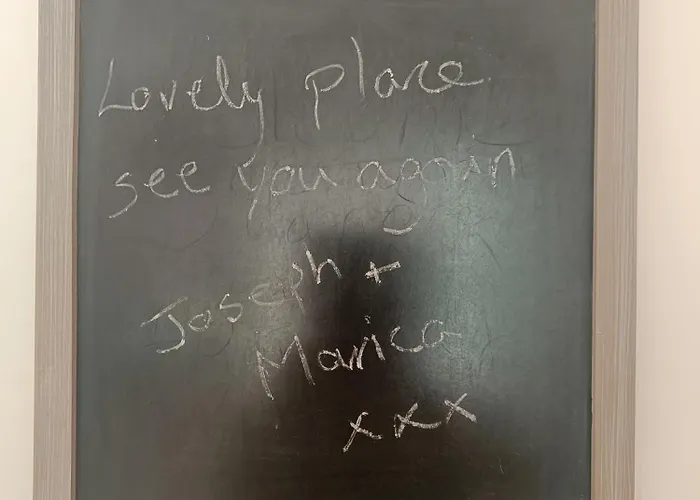 Lovely place
see you again
Joseph +
Marica
xxx